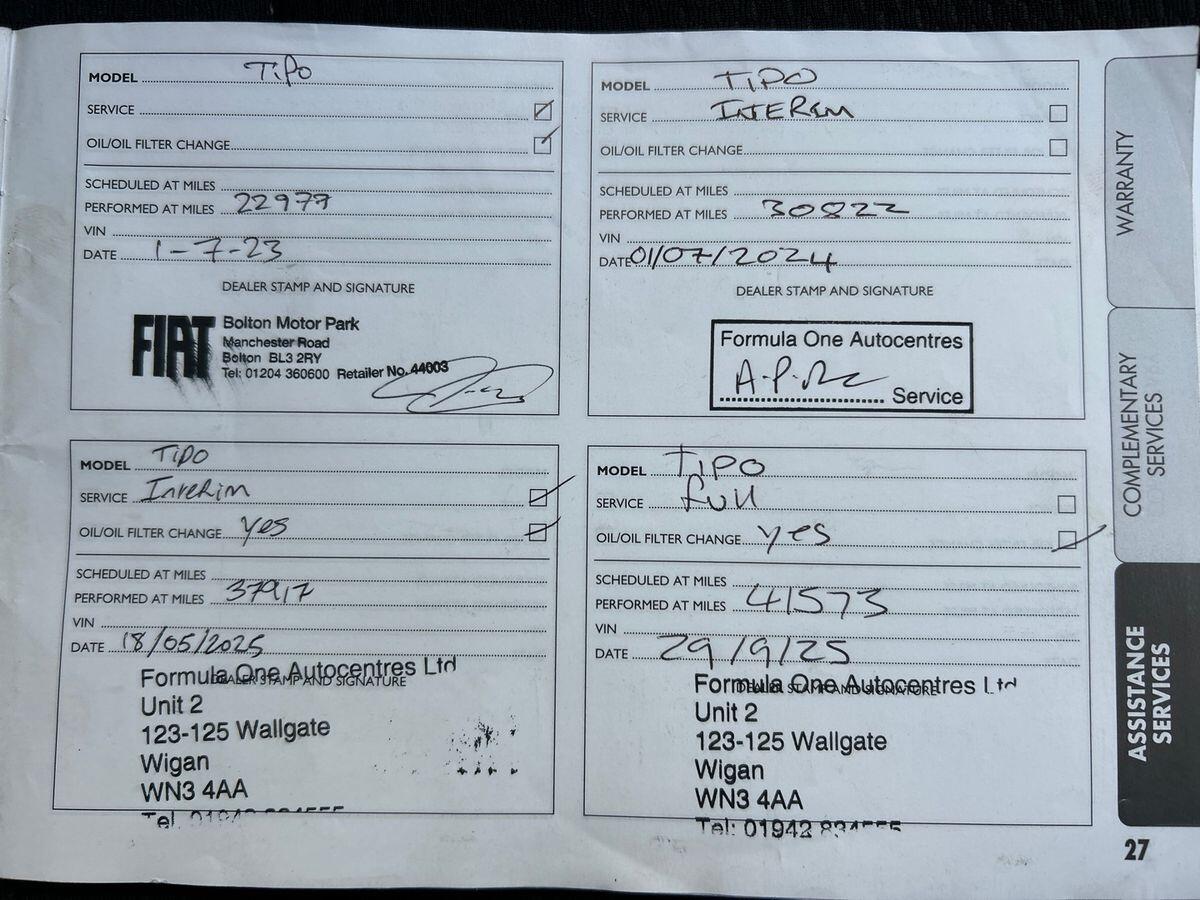 MODEL Tipo
SERVICE
OIL/OIL FILTER CHANGE
SCHEDULED AT MILES
PERFORMED AT MILES 22977
VIN
DATE 1-7-23
DEALER STAMP AND SIGNATURE
FIAT
Bolton Motor Park
Manchester Road
Bolton BL3 2RY
Tel: 01204 360600 Retailer No. 44003
MODEL TIPO
SERVICE INTERIM
OIL/OIL FILTER CHANGE
SCHEDULED AT MILES
PERFORMED AT MILES 30822
VIN
DATE 01/07/2024
DEALER STAMP AND SIGNATURE
Formula One Autocentres
Service
MODEL TIPO
SERVICE Interim
OIL/OIL FILTER CHANGE yes
SCHEDULED AT MILES
PERFORMED AT MILES 37917
VIN
DATE 18/05/2025
DEALER STAMP AND SIGNATURE
Formula One Autocentres Ltd
Unit 2
123-125 Wallgate
Wigan
WN3 4AA
Tel
MODEL TIPO
SERVICE full
OIL/OIL FILTER CHANGE yes
SCHEDULED AT MILES
PERFORMED AT MILES 41573
VIN
DATE 29/9/25
DEALER STAMP AND SIGNATURE
Formula One Autocentres Ltd
Unit 2
123-125 Wallgate
Wigan
WN3 4AA
Tel: 01942
WARRANTY
COMPLEMENTARY
SERVICES
ASSISTANCE
SERVICES
27